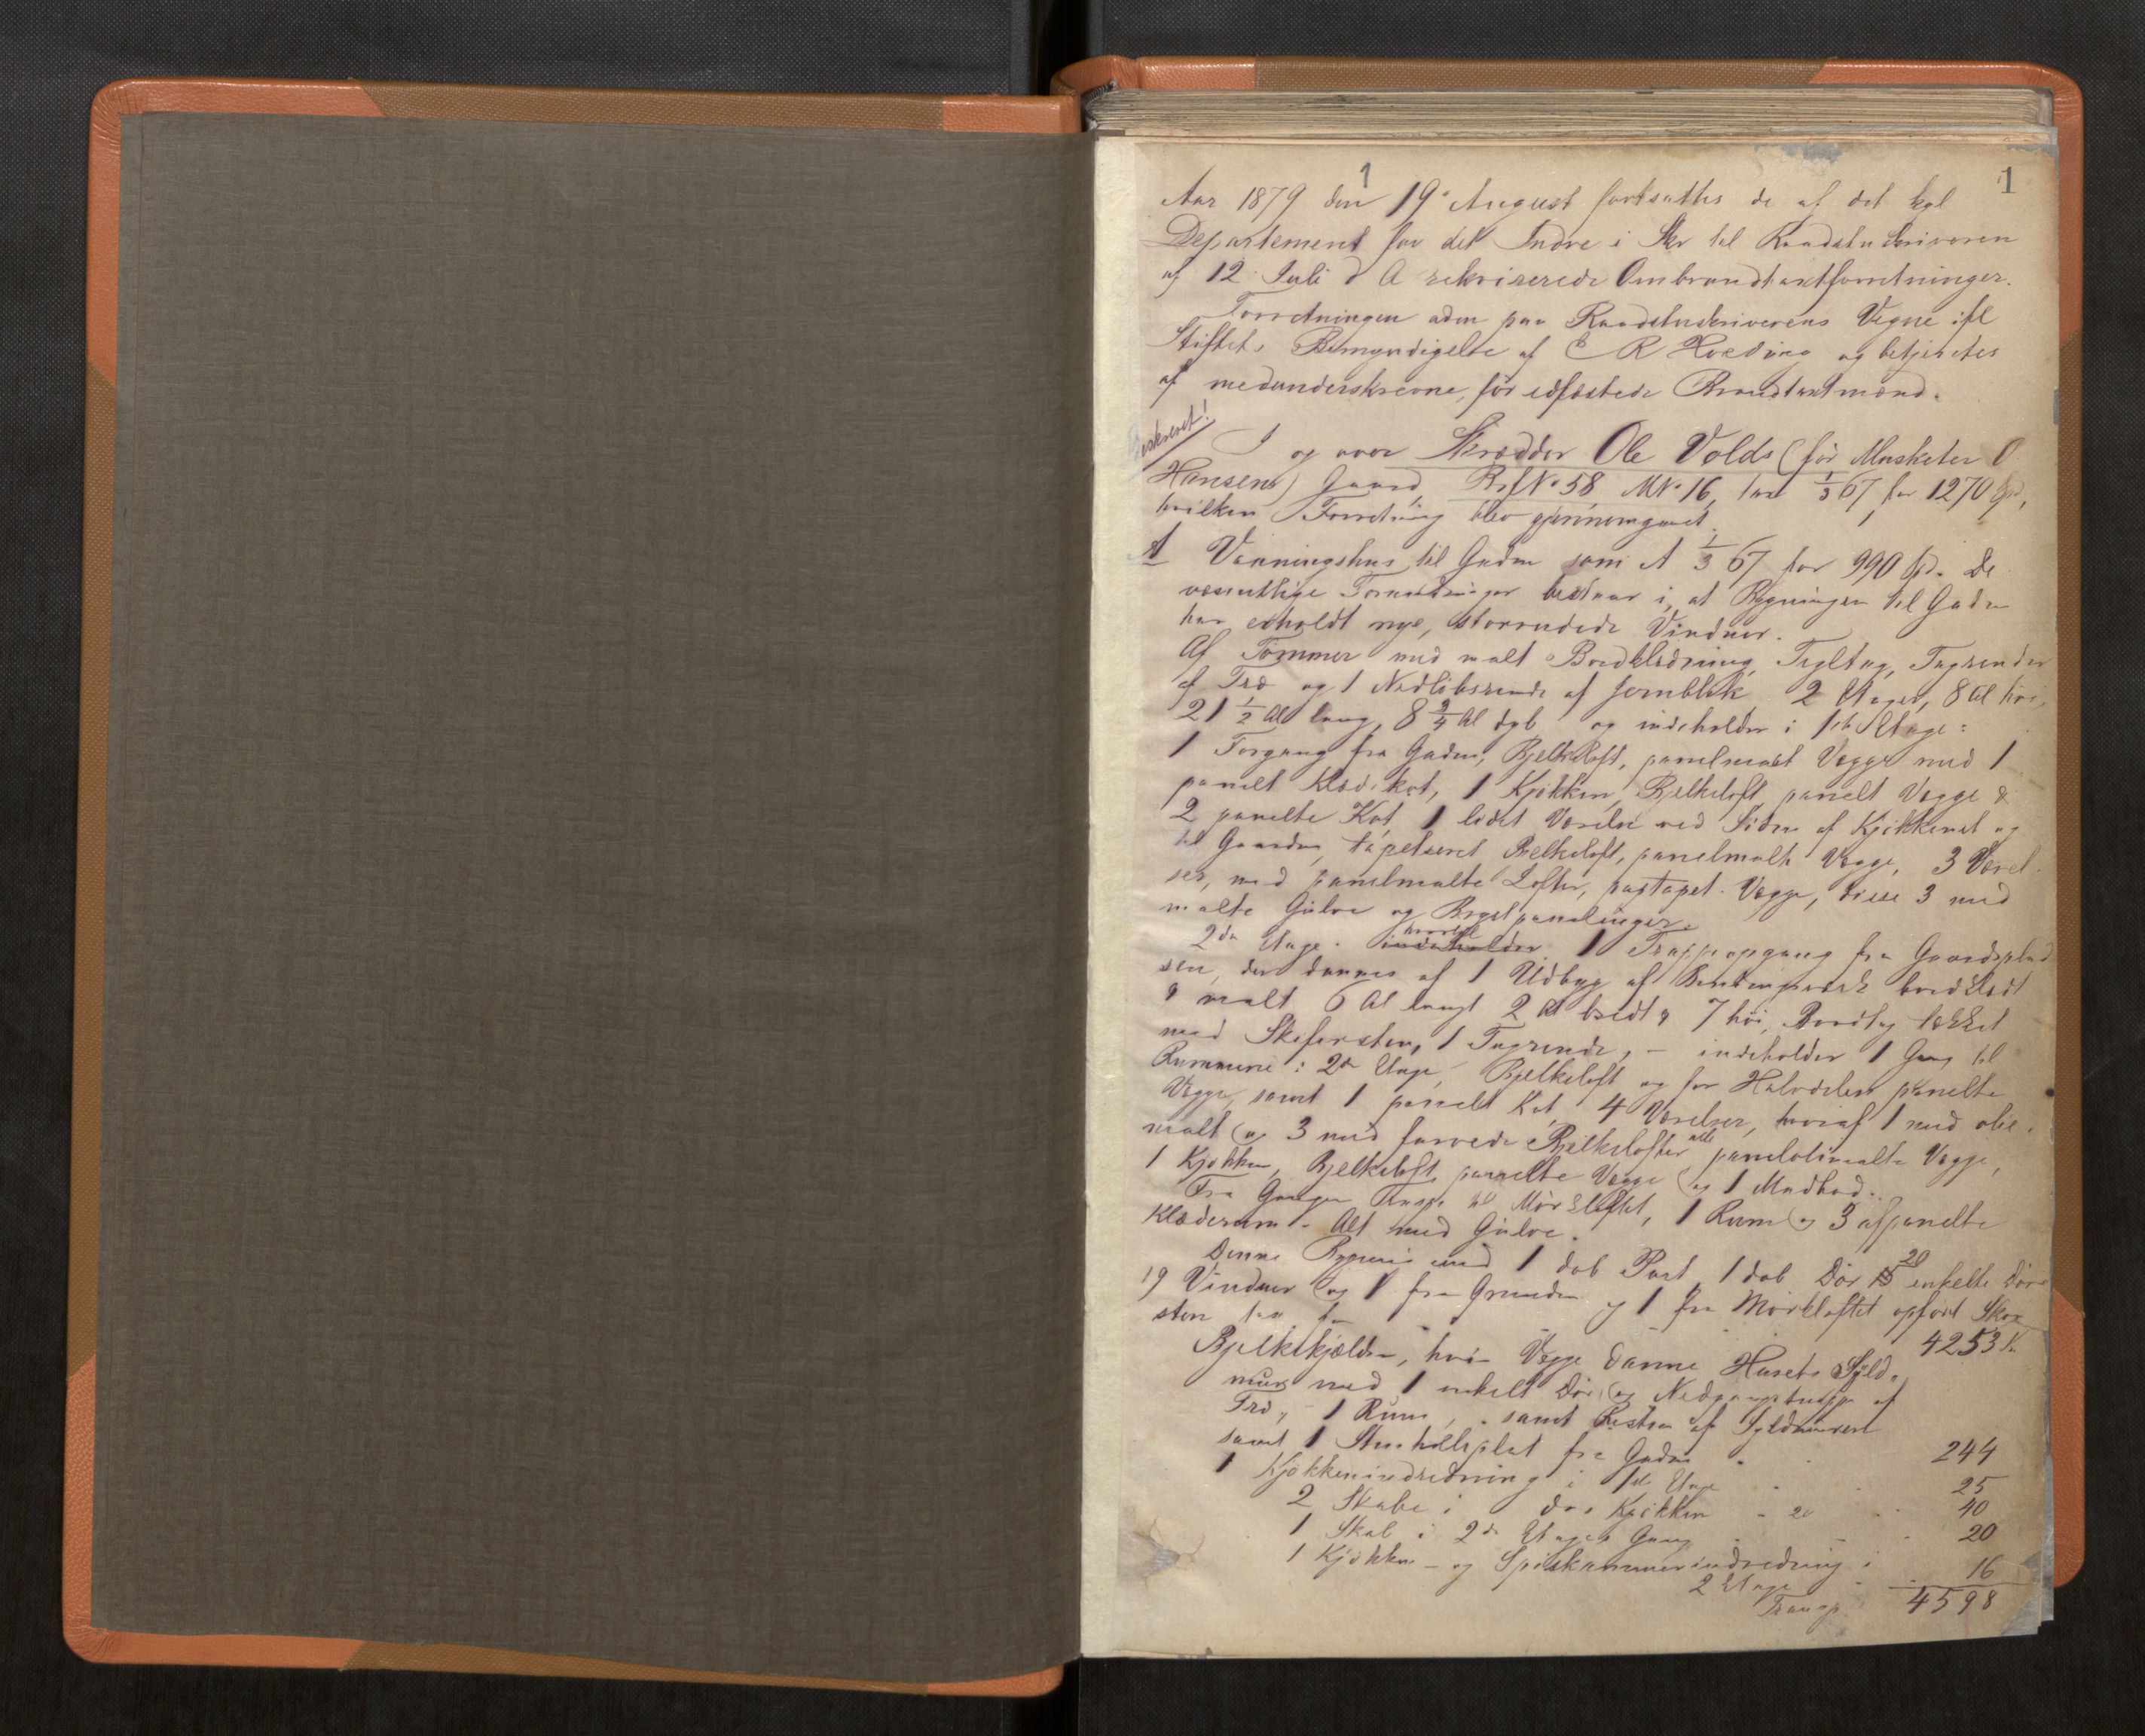 1
1
Aar 1879 den 19 August fortsattes de af det kgl
Departement for det Indre i Skr til Raadstuskriveren
af 12 Juli d A rekvirerede Ombrandtaxtforretninger.
Forretningen adm paa Raadstuskriverens Vegne ifl
Stiftets Bemyndigelse af C R Hveding og betjentes
af medunderskrevne, før edfæstede Brandtaxtmænd.
Beskrevet!
I og over Skrædder Ole Volds (før Musketer O
Hansens) Gaard, BrfNo 58 MNo 16, taxt 1/3 67 for 1270 Spd,
hvilken Forretning blev gjennemgaaet.
A Vaaningshus til Gaden som A 1/3 67 for 990 Spd. De
væsentlige Forandringer bestaar i, at Bygningen til Gaden
har erholdt nye, storrudede Vinduer.
Af Tømmer med malt Bordklædning, Tegltag, Tagrender
af Træ og 1 Nedløbsrende af Jernblik 2 Etager, 8 Al høi,
21 1/2 Al lang, 8 3/4 Al dyb og indeholder i 1ste Etage:
1 Forgang fra Gaden, Bjelkeloft, panelmalt Vægge med 1
panelt Klædekot, 1 Kjøkken, Bjelkeloft panelt Vægge &
2 panelte Kot, 1 lidet Værelse ved Siden af Kjøkkenet og
til Gaarden, tapetseret Bjelkeloft, panelmalte Vægge, 3 Værel-
ser, med panelmalte Lofter, paptapet. Vægge, disse 3 med
malte Gulve og Brystpanelinger.
2den Etage. indeholder hvortil 1 Trappeopgang fra Gaardsplad
sen, der dannes af 1 Udbyg af Bindingsværk bordklædt
& malt, 6 Al langt 2 Al bredt & 7 høi, Bordtag tækket
med Skifersten, 1 Tagrende, – indeholder 1 Gang til
Rummene i 2den Etage, Bjelkeloft og for Halvdelen panelte
Vægge, samt 1 panelt Kot, 4 Værelser, hvoraf 1 med olie-
malt og 3 med farvede Bjelkelofter alle paneloliemalte Vægge,
1 Kjøkken, Bjelkeloft, panelte Vægge og 1 Madbod.
Fra Gangen Trappe til Mørkloftet, 1 Rum og 3 afpanelte
Klæderum – Alt med Gulve.
Denne Bygning med 1 dob Port, 1 dob Dør 15 20 enkelte Døre
19 Vinduer og 1 fra Grunden og 1 fra Mørkloftet opført Skor
sten
4253 K
Bjelkekjælder, hvis Vægge danne Husets Syld-
mur med 1 enkelt Dør og Nedgangstrappe af
Træ, 1 Rum, samt Resten af Syldmuren
samt 1 fra Gaden 244
1 Kjøkkenindredning i 1ste Etage 25
2 Skabe i dos Kjøkken 40
1 Skab i 2den Etages Gang 20
1 Kjøkken- og Spiskammerindredning i
2 Etage 16
Transp 4598